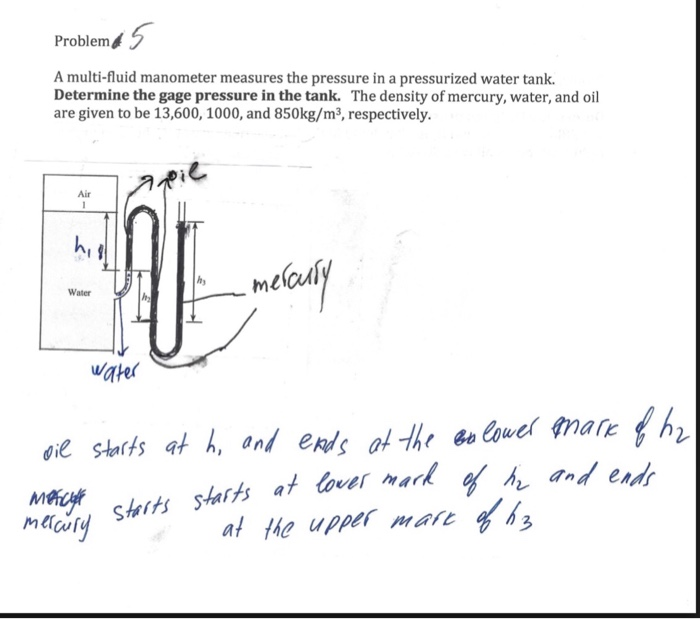 Problem 5
A multi-fluid manometer measures the pressure in a pressurized water tank.
Determine the gage pressure in the tank. The density of mercury, water, and oil
are given to be 13,600, 1000, and 850kg/m³, respectively.
oil
Air
1
h₁
h₃
mercury
Water
h₂
water
oil starts at h, and ends at the lower mark of h₂
mercury starts starts at lower mark of h₂ and ends
at the upper mark of h₃